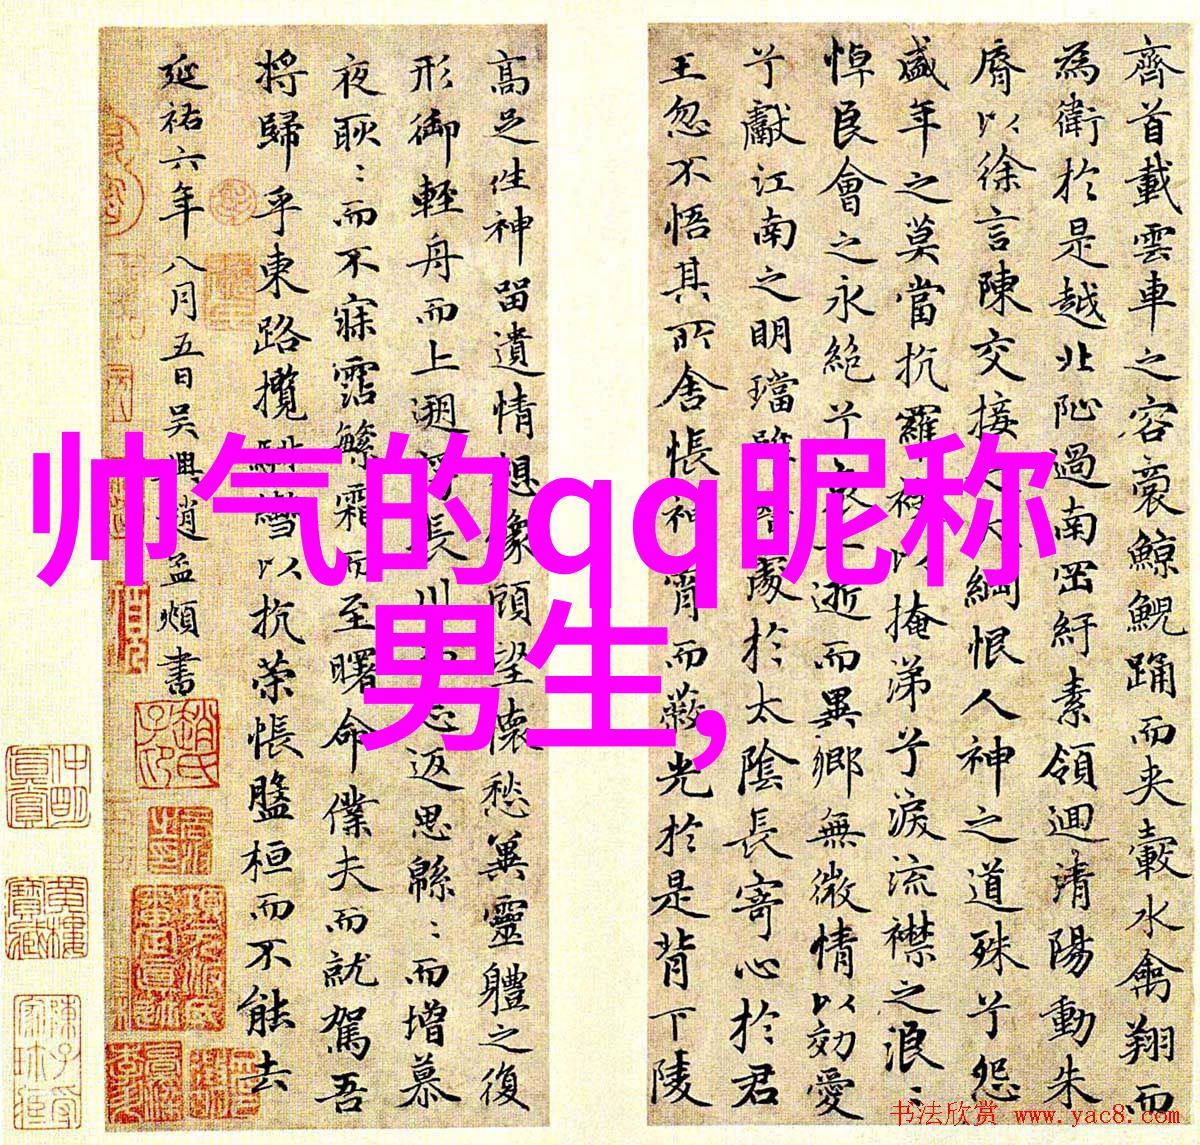 齊首載雲車之容裔鯨鯢踊而夾轂水禽翔而
為衛於是越北沚過南岡紆素領迴清陽動朱
脣以徐言陳交接之大綱恨人神之道殊兮怨
盛年之莫當抗羅袂以掩涕兮淚流襟之浪〻
悼良會之永絕兮哀一逝而異鄉無微情以効愛
兮獻江南之明璫雖潛處於太陰長寄心於君
王忽不悟其所舍悵神宵而蔽光於是背下陵
高足往神留遺情想像顧望懷愁冀靈體之復
形御輕舟而上遡浮長川而忘返思緜〻而增慕
夜耿〻而不寐霑繁霜而至曙命僕夫而就駕吾
將歸乎東路攬騑轡以抗策悵盤桓而不能去
延祐六年八月五日吳興趙孟頫書
帅气的qq昵称
男生,
趙氏子印
书法欣赏 www.yac8.com